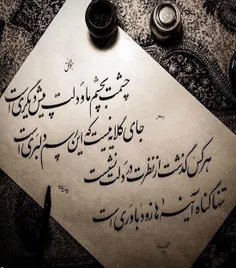 چشمت بچشم ما و دلت پیش دیگری است
جای گلایه نیست که این رسم دلبری است
هر کس گذشت از نظرت در دلت نشست
تنها گناه آینه ها زود باوری است